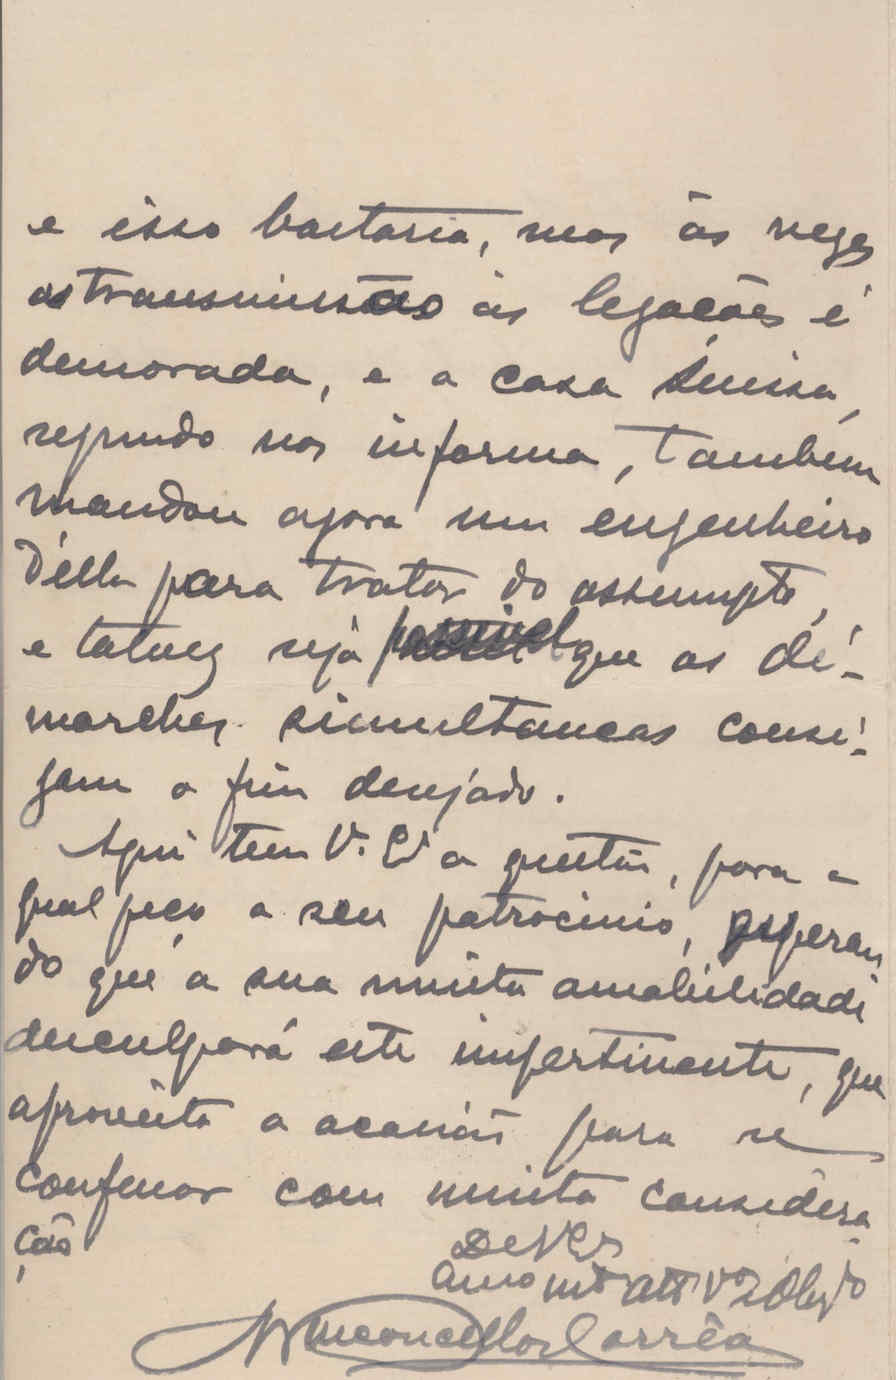 e isso bastaria, mas às vezes
as transmissão às legações é
demorada, e a casa Suissa,
segundo nos informa, também
mandou agora um engenheiro
d'ella para tratar do assumpto,
e talvez seja possivel que as dé-
marches simultaneas consi-
gam o fim desejado.
Aqui tem V. Ex a questão, para a
qual peço o seu patrocinio, esperan
do que a sua muita amabilidade
desculpará este impertinente, que
aproveita a ocasião para se
confessar com muita considera
ção
De V. Ex
Amo mto att Vor e Obgdo
Vasconcellos Corrêa